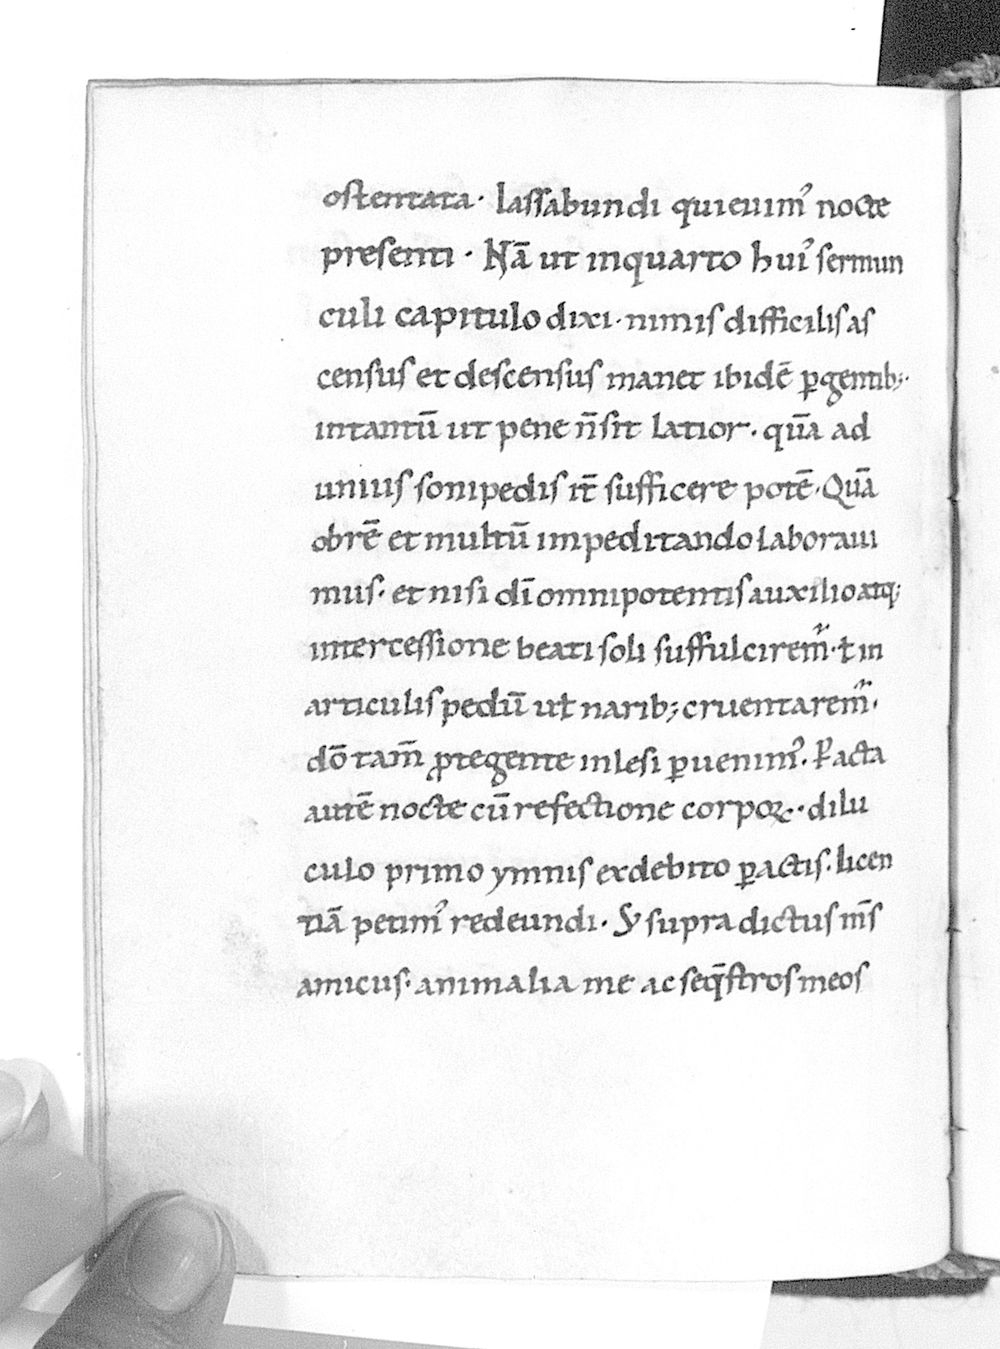 ostentata · lassabundi quieuim᾽ nocte
presenti · Nā ut inquarto hui᾽ sermun
culi capitulo dixi · nimis difficilis as
census et descensus manet ibidē ꝑgentib;·
intantū ut pene n̄ sit latior · quā ad
unius sonipedis it̄ sufficere potē · Quā
obrē et multū impeditando laboraui
mus · et nisi dī omnipotentis auxilio atq;
intercessione beati soli suffulcirem᷑ · ł in
articulis pedū uł narib; cruentarem᷑ ·
dō tam̄ ꝓtegente inlesi ꝑuenim᾽ · Pacta
autē nocte cū refectione corpoꝝ · dilu
culo primo ymnis exdebito ꝑactis · licen
tiā petim᾽ redeundi · Sꝫ supra dictus m̄s
amicus · animalia me ac seq̄stros meos